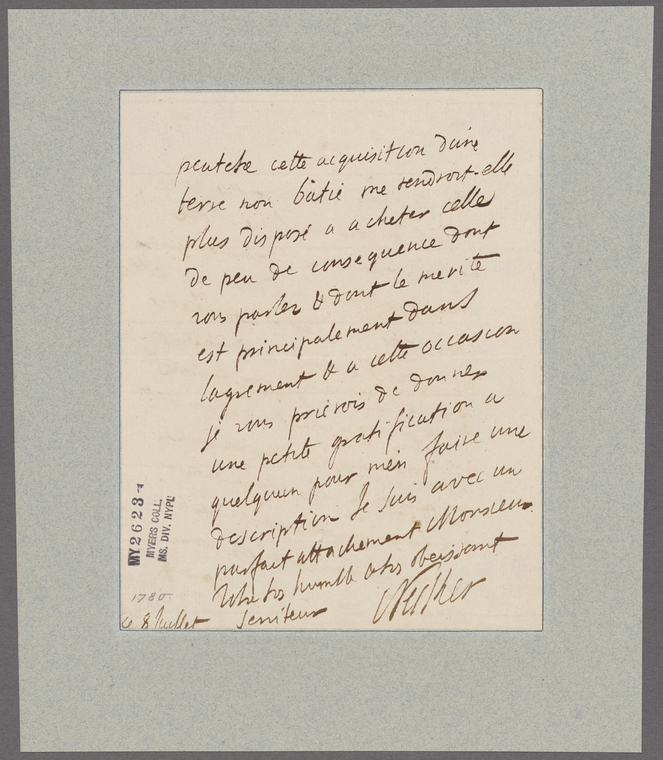 peutetre cette acquisition dune
terre non bâtie me rendroit-elle
plus disposé a acheter celle
de peu de consequence dont
vous parlez & dont le merite
est principalement dans
lagrement & a cette occasion
je vous prierois de donner
une petite gratification a
quelquun pour men faire une
description Je suis avec un
parfait attachement Monsieur
Votre tres humble & tres obeissant
serviteur Necker
ce 8 Juillet
1780.
MY 2623
MYERS COLL.
MS. DIV. NYPL